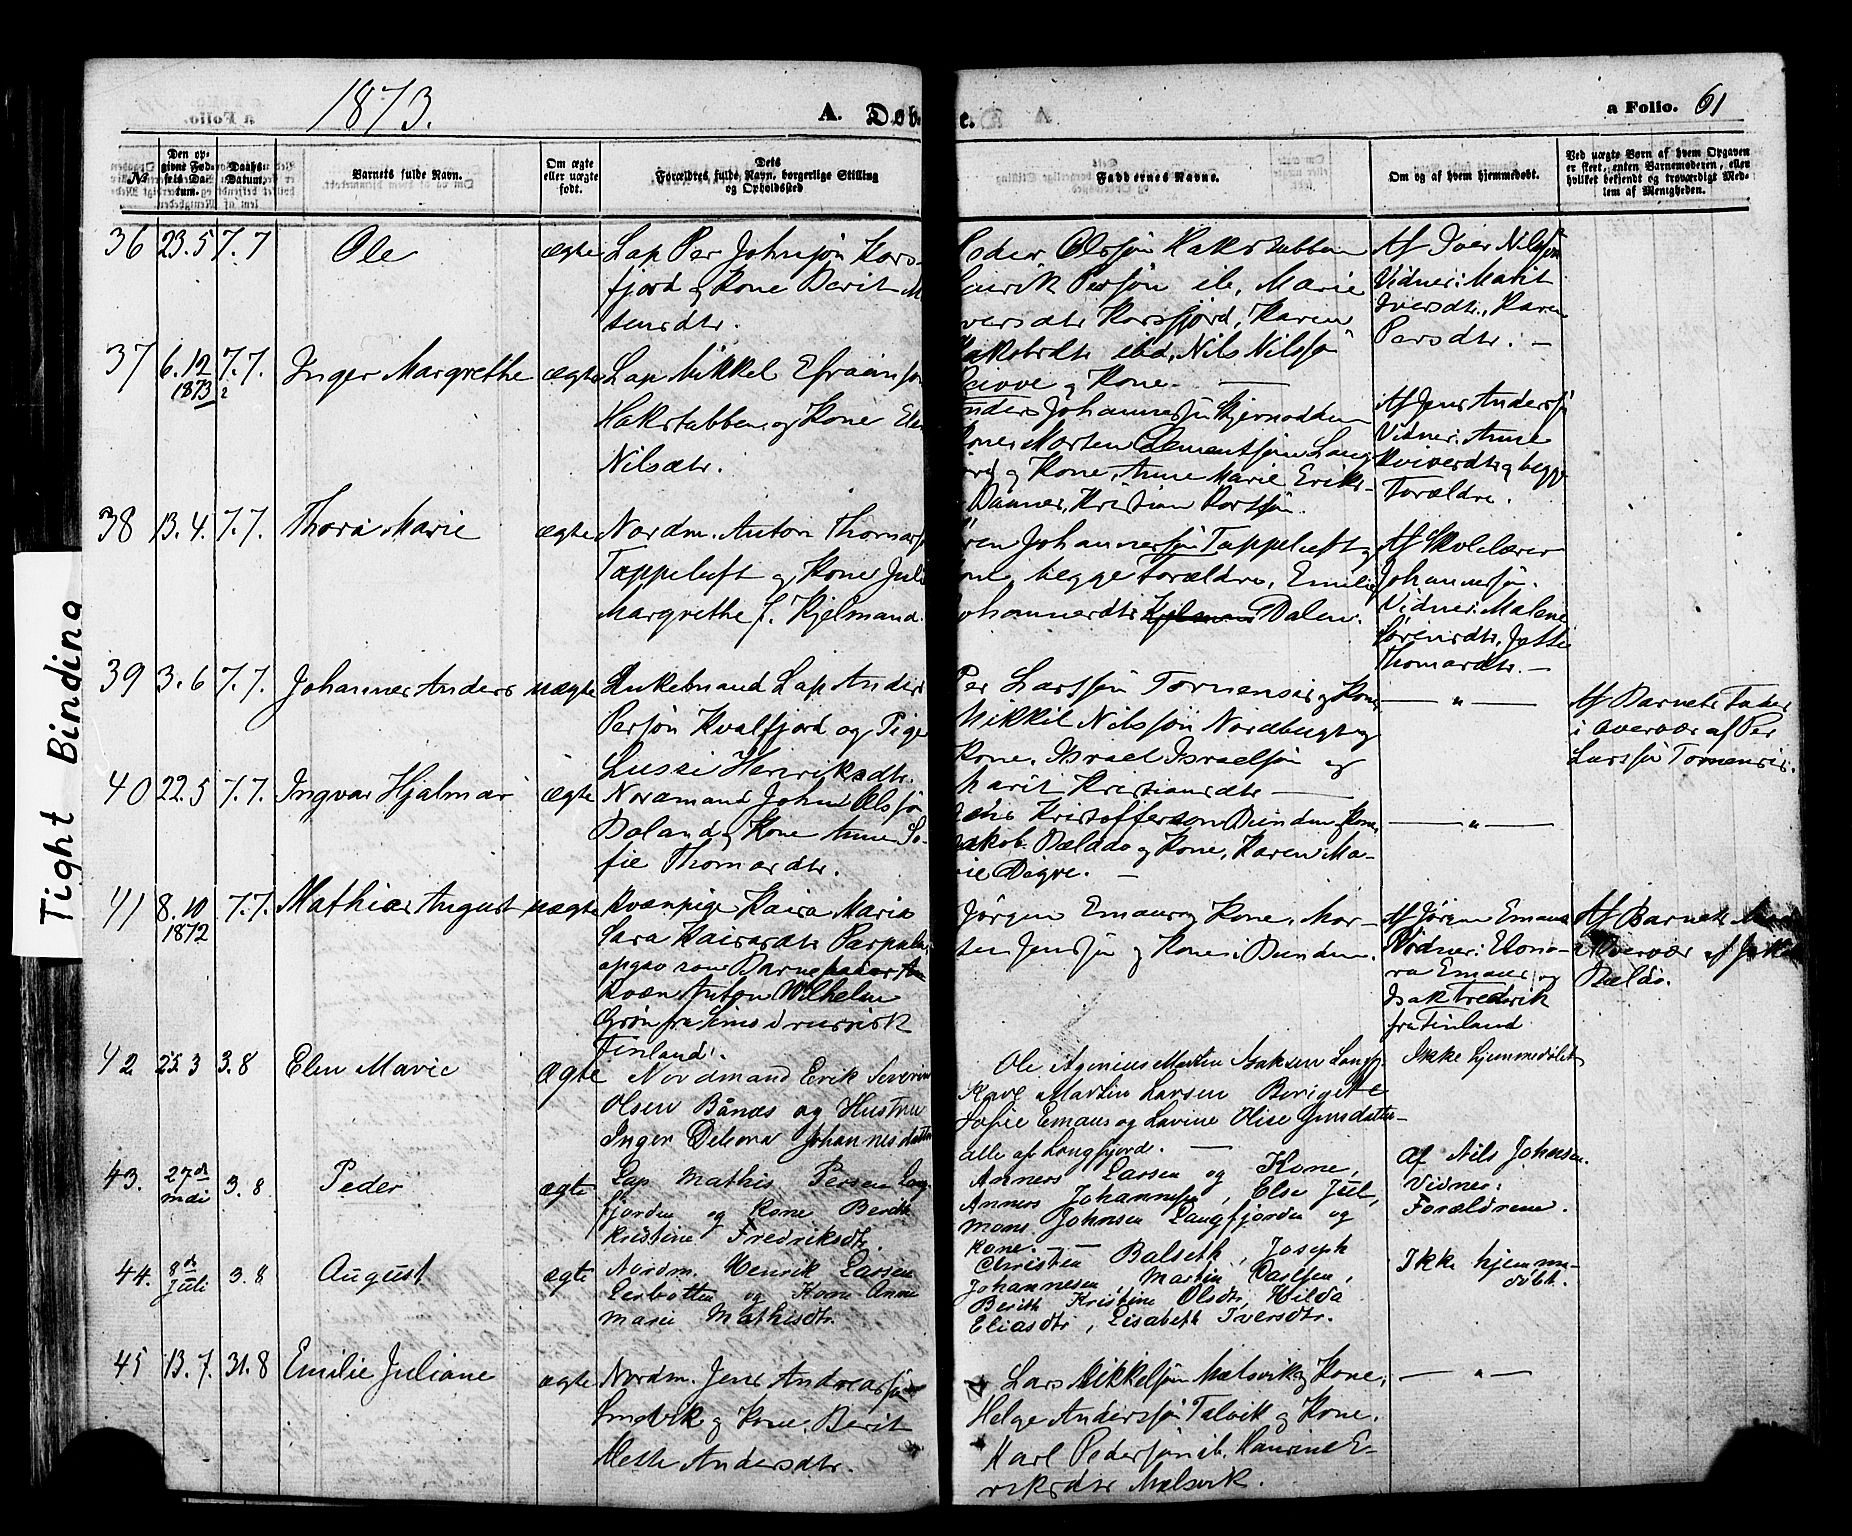 1873.
A. Døb
e.
a Folio. 61
Tight Binding
No
Den op-
givne Fød-
sels Da-
tum.
Daabs-
Datum.
Barnets fulde Navn.
Om ægte
eller uægte
født.
Dets
Forældres fulde Navn, borgerlige Stilling
og Opholdssted
Faddernes Navne.
Om og af hvem hjemmedøbt.
Ved uægte Børn af hvem Opgaven
er skeet, enten Barnemoderen, eller
hvilket bekjendt og troværdigt Med-
lem af Menigheden.
36 23.5 7.7 Ole ægte Lap Per Johnsøn Kors-
fjord og Kone Berit M
tensdtr.
Peder Olssøn Hakstabben
Persøn ib, Marie
versdtr Korsfjord, Karen
Jakobsdtr ibd, Nils Nilssøn
og Kone.
Af Iver Nilssøn
Vidner: Marit
Iversdtr, Karen
Persdtr. —
37 6.12 1873 7.7. Inger Margrethe ægte Lap Mikkel Efraimsøn
Hakstabben og Kone Elen
Nilsdtr.
Anders Johannessøn
Kone, Morten Clementsøn Lang-
fjord og Kone, Anne Marie Eriks-
Kristian Korssøn.
Af Jens Anderssøn
Vidner: Anne
og begge
Forældre.
38 13.4. 7.7. Thora Marie ægte Nordm. Anton Thomas
Tappeluft og Kone Juli
Margrethe f. Hjelmand.
ren Johannessøn Tappeluft og
Kone, begge Forældre, Emilie
Johannesdtr Dalen.
Af Skolelærer
Johannessøn.
Vidner: Malene
Sørensdtr, Jette
Thomasdtr. —
39 3.6 7.7. Johannes Anders uægte Enkemand Lap Anders
Persøn Kvalfjord og Pige
Lussi Henriksdtr.
Per Larssøn Tornensis og Kone,
Mikkel Nilssøn Nordbugt og
Kone, Israel Israelsøn og
Marit Kristiansdtr —
— " —
Af Barnets Fader
i Overvær af Per
Larssøn Tornensis.
40 22.5 7.7. Ingvar Hjalmar ægte Nordmand John Olssøn
og Kone Anne So-
fie Thomasdtr.
Kristofferson og Kone,
Jakob Bælddo og Kone, Karen Ma-
rie Digre. —
— " —
41 8.10 1872 7.7. Mathias August uægte Kvænpige Kaisa Maria
Sara Kaisasdtr
opgav som Barnefader
Kvæn Anton Wilhelm
Grøn fra i russisk
Finland.
Jørgen Emaus og Kone, Mor-
ten Jenssøn og Kone,
Af Jørgen Emaus
Vidner: Elono-
ra Emaus og
Isak Fredrik
fra Finland
Af Barnets
i Overvær af
Bælddo.
42 25.3 3.8 Elen Marie ægte Nordmand Erik Severin
Olsen Bånæs og Hustru
Inger Johannesdatter
Ole Martin Isaksen Langf
Karl Martin Larsen
Sofie Emaus og Lavine Olise Jensdatter
alle af Langfjord. —
Ikke hjemmedøbt
43. 27de mai 3.8 Peder ægte Lap Mathis Persen Lang-
fjorden og Kone Berith
Kristine Fredriksdtr.
Anners Larsen og Kone,
Anners Johannesen, Else Juli,
Mons Johnsen Langfjorden og
Kone. —
Af Nils Johnsen.
Vidner:
Forældrene.
44. 8de Juli 3.8 August ægte Nordm. Henrik Larsen
Lerbotten og Kone Anne
Marie Mathisdtr.
Christen Balseth, Joseph
Johannesen, Martin Carlsen,
Berith Kristine Olsdtr, Hilda
Eliasdtr, Elisabeth Iversdtr.
Ikke hjemme-
døbt.
45 13.7. 31.8 Emilie Juliane ægte Nordm. Jens Andreassøn
og Kone Berit
Mette Andersdtr.
Lars Mikkelsøn Mælsvik og Kone,
Helge Anderssøn Talvik og Kone.
Karl Pedersøn ib. E-
riksdtr Mælsvik.
— " —